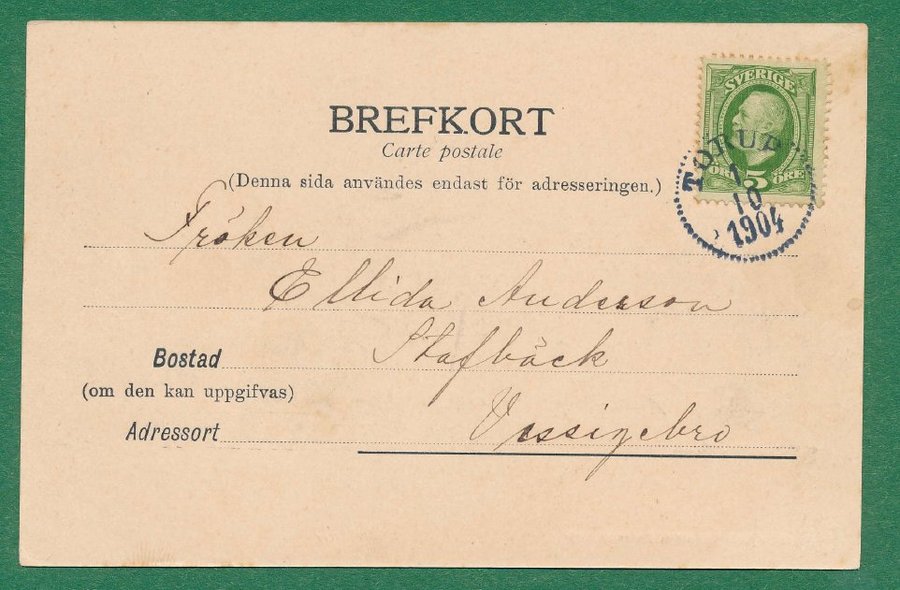 BREFKORT
Carte postale
(Denna sida användes endast för adresseringen.)
SVERIGE
ÖRE 5 ÖRE
TORUP
1
10
1904
Fröken
Ellida Anderson
Bostad Stafbäck
(om den kan uppgifvas)
Adressort Vessigebro